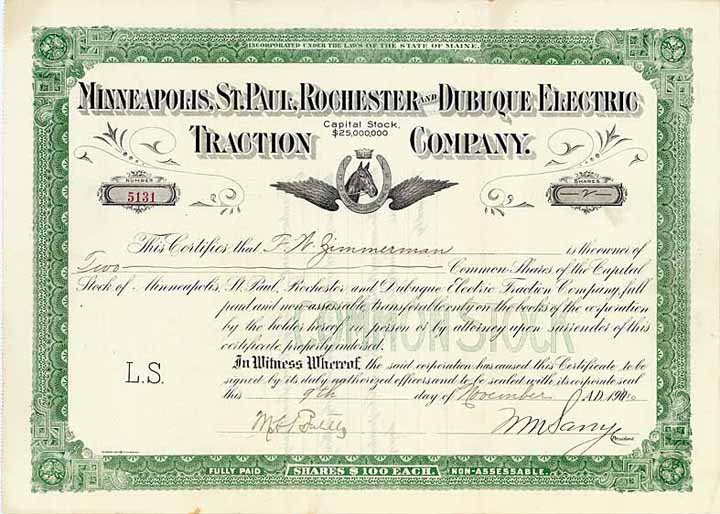 INCORPORATED UNDER THE LAWS OF THE STATE OF MAINE.
MINNEAPOLIS, ST. PAUL, ROCHESTER AND DUBUQUE ELECTRIC
TRACTION COMPANY.
Capital Stock,
$25,000,000
NUMBER
5131
SHARES
2
This Certifies that F. W. Zimmerman is the owner of
Two Common Shares of the Capital
Stock of Minneapolis, St. Paul, Rochester and Dubuque Electric Traction Company, full
paid and non-assessable, transferable only on the books of the corporation
by the holder hereof in person or by attorney upon surrender of this
certificate properly indorsed.
COMMON STOCK
L.S.
In Witness Whereof, the said corporation has caused this Certificate to be
signed by its duly authorized officers and to be sealed with its corporate seal
this 9th day of November A.D. 19
President
FULLY PAID
SHARES $100 EACH.
NON-ASSESSABLE.